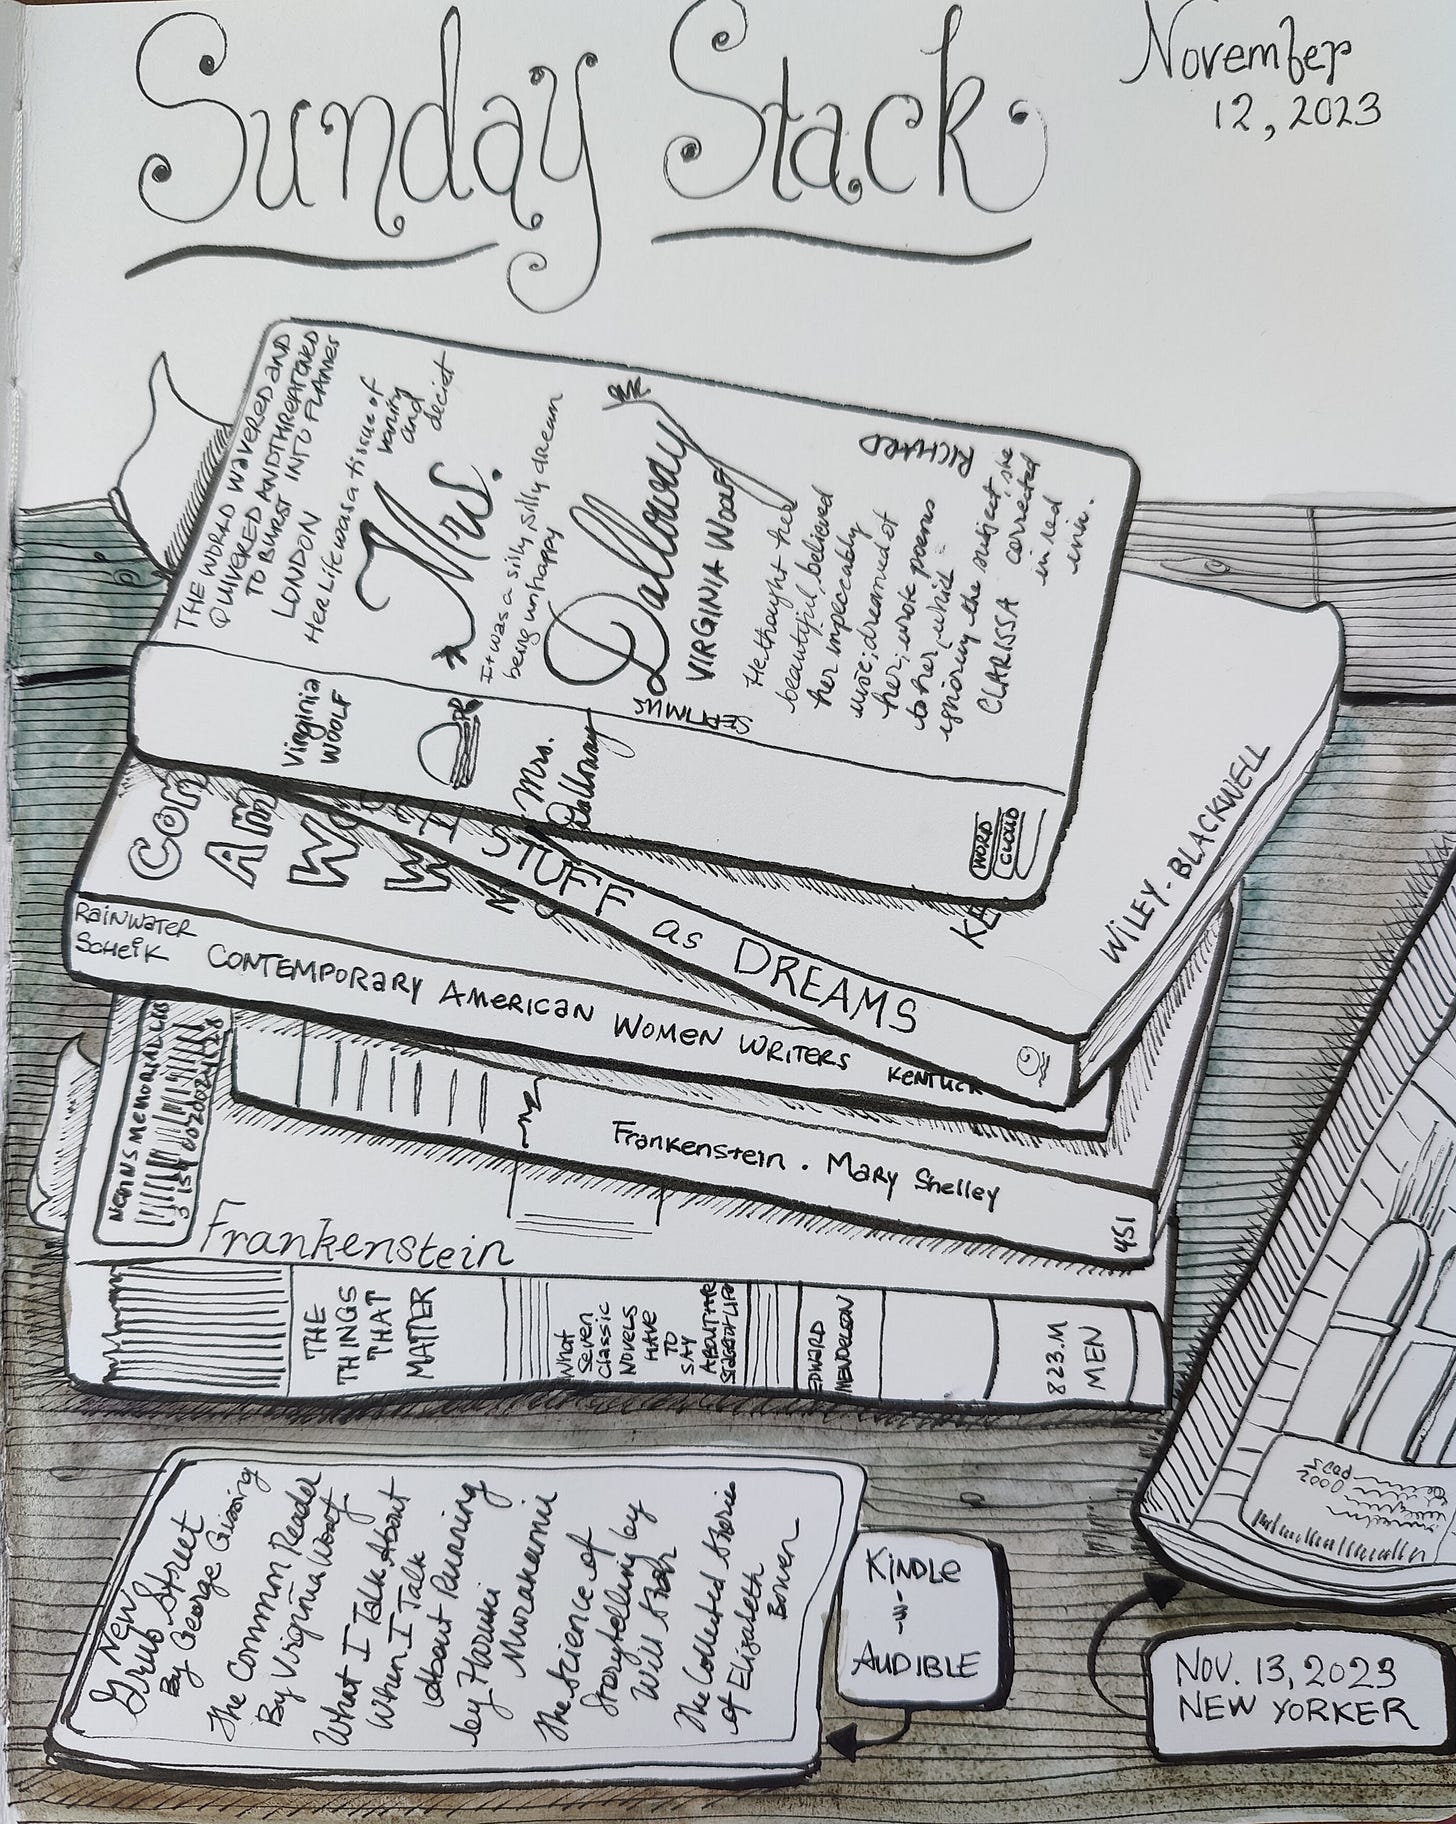 Sunday Stack
November
12, 2023
THE WORLD WAVERED AND
QUIVERED AND THREATENED
TO BURST INTO FLAMES
LONDON
Her Life was a tissue of
vanity
and
deciet
Mrs.
It was a silly, silly dream
being unhappy
Dalloway
VIRGINIA WOOLF
RICHARD
He thought her
beautiful, believed
her impeccably
wise; dreamed of
her, wrote poems
to her, which
ignoring the subject, she
CLARISSA corrected
in red
ink.
SEPTIMUS
Virginia
WOOLF
Mrs.
Dalloway
WORD
CLOUD
Con
Am
Wo
W
STUFF as DREAMS
KE
WILEY-BLACKWELL
RAINWATER
SCHEIK
CONTEMPORARY AMERICAN WOMEN WRITERS
KENTUCK
NEVINS MEMORIAL LIB
Frankenstein . Mary Shelley
451
Frankenstein
THE
THINGS
THAT
MATTER
What
Seven
Classic
NOVELS
HAVE
TO
SAY
ABOUT THE
STAGES OF LIFE
EDWARD
MENDELSON
823.M
MEN
New
Grub Street
By George Gissing
The Common Reader
By Virginia Woolf
What I Talk About
When I Talk
About Running
by Haruki
Murakami
The Science of
Storytelling by
Will Storr
The Collected Stories
of Elizabeth
Bowen
KINDLE
AUDIBLE
NOV. 13, 2023
NEW YORKER